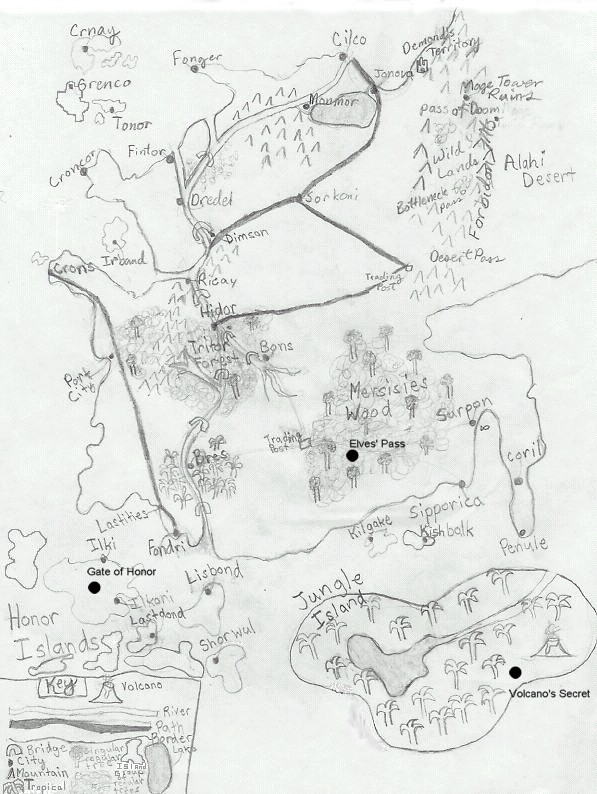 Crnay
Grenco
Tonor
Fonger
Cilco
Demond's
Territory
Jonova
Manmor
Mage Tower
Ruins
Pass of Doom
Wild
Lands
Alahi
Desert
Forbidden
Bottleneck
Pass
Fintor
Croncor
Dredel
Sorkoni
Dimson
Irband
Desert Pass
Trading
Post
Crons
Ricay
Hidor
Tritor
Forest
Bons
Port
City
Mersisies
Wood
Surpon
Trading
Post
Elves' Pass
Bres
Coril
Sipporica
Lastities
Fondri
Kilgake
Kishbalk
Penule
Ilki
Gate of Honor
Ilkoni
Lisbond
Lastdond
Honor
Islands
Shorwul
Jungle
Island
Volcano's Secret
Key
Volcano
River
Path
Border
Bridge
City
Mountain
Tropical
Singular
regular
tree
Island
Group
of
regular
trees
Lake